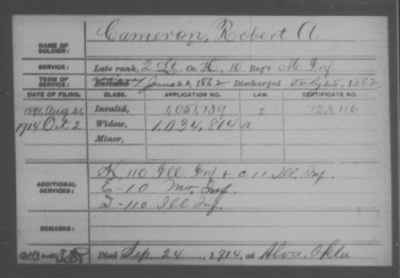 Cameron, Robert A
NAME OF SOLDIER:
SERVICE: Late rank, 2 Lt. Co. H, 10 Reg't Mo. Inf.
TERM OF SERVICE: Enlisted June 22, 1862 Discharged July 25, 1862
DATE OF FILING. CLASS. APPLICATION NO. LAW. CERTIFICATE NO.
1891 Aug 21 Invalid, 1,051,139 723.116
1914 Oct 2 Widow, 1,034,814
Minor,
ADDITIONAL SERVICES:
K, 110 Ill. Inf + C 11 Ill. Inf.
E-10 Mo. Inf
D-110 Ill Inf.
REMARKS:
Died Sep 24, 1914, at Alva, Okla